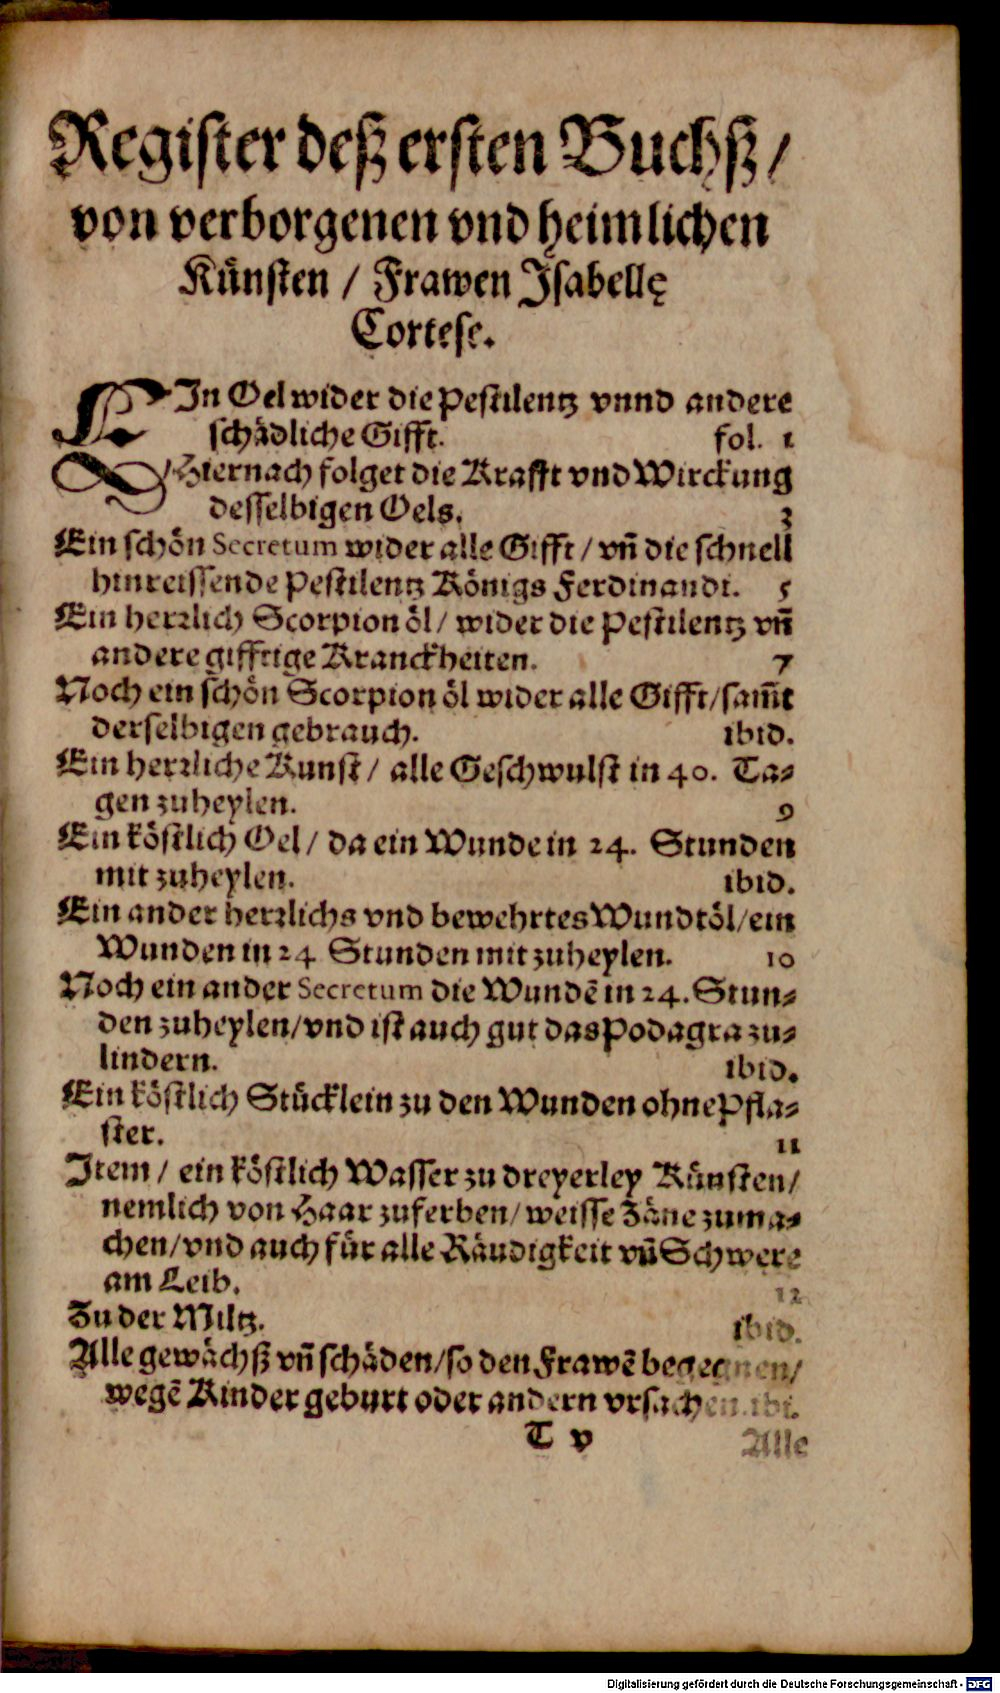 Register deß ersten Buchß /
von verborgenen vnd heimlichen
Künsten / Frawen Isabellę
Cortese.
EIn Oel wider die Pestilentz vnnd andere
schädliche Gifft. fol. 1
Hiernach folget die Krafft vnd Wirckung
desselbigen Oels. 3
Ein schön Secretum wider alle Gifft / vñ die schnell
hinreissende Pestilentz Königs Ferdinandi. 5
Ein herrlich Scorpion öl / wider die Pestilentz vñ
andere gifftige Kranckheiten. 7
Noch ein schön Scorpion öl wider alle Gifft / sam̃t
derselbigen gebrauch. ibid.
Ein herrliche Kunst / alle Geschwulst in 40. Ta⸗
gen zuheylen. 9
Ein köstlich Oel / da ein Wunde in 24. Stunden
mit zuheylen. ibid.
Ein ander herrlichs vnd bewehrtes Wundtöl / ein
Wunden in 24 Stunden mit zuheylen. 10
Noch ein ander Secretum die Wundẽ in 24. Stun⸗
den zuheylen / vnd ist auch gut das Podagra zu⸗
lindern. ibid.
Ein köstlich Stücklein zu den Wunden ohne Pfla⸗
ster. 11
Item / ein köstlich Wasser zu dreyerley Künsten /
nemlich von Haar zuferben / weisse Zäne zuma⸗
chen / vnd auch für alle Räudigkeit vñ Schwere
am Leib. 12
Zu der Miltz. ibid.
Alle gewächß vñ schäden / so den Frawẽ begegnen /
wegẽ Kinder geburt oder andern vrsachen. ibi.
T v Alle
Digitalisierung gefördert durch die Deutsche Forschungsgemeinschaft - DFG